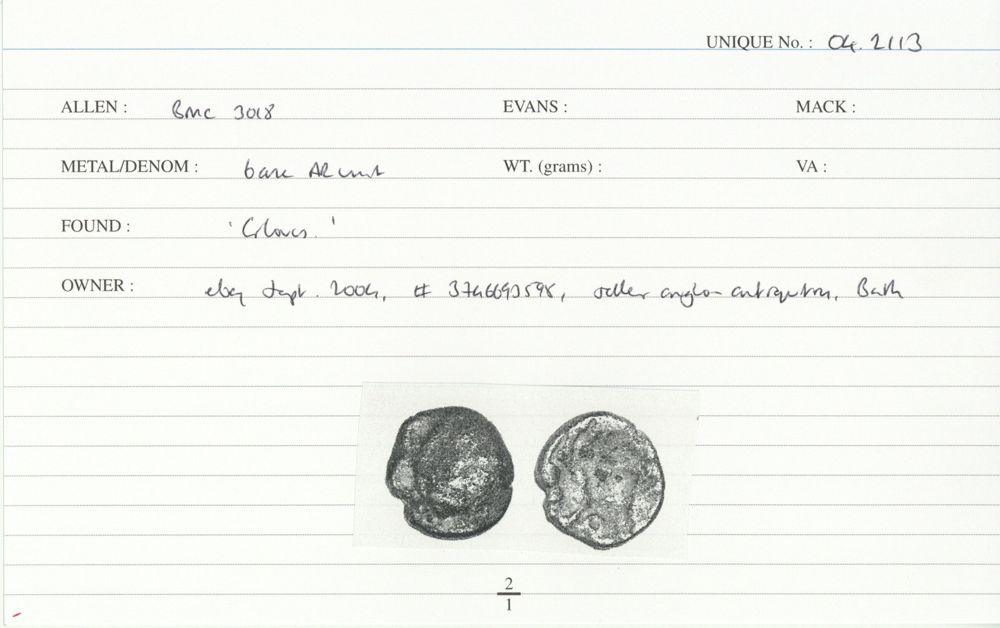 UNIQUE No. : 04.2113
ALLEN : BMC 3018 EVANS : MACK :
METAL/DENOM : base AR unit WT. (grams) : VA :
FOUND : 'Gloucs.'
OWNER : ebay Sept. 2004, # 3746693598, seller anglo- Bath
2
1